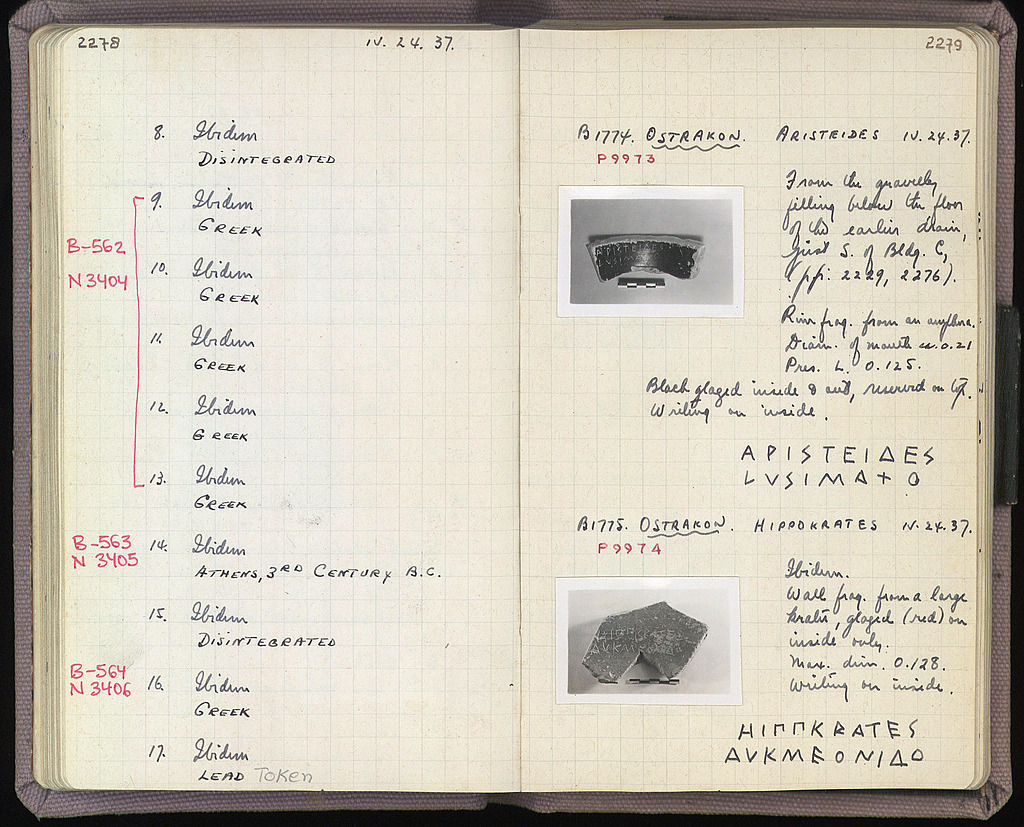 2278
IV. 24. 37.
8. Ibidem
DISINTEGRATED
9. Ibidem
GREEK
B-562
N 3404
10. Ibidem
GREEK
11. Ibidem
GREEK
12. Ibidem
GREEK
13. Ibidem
GREEK
B-563
N 3405
14. Ibidem
ATHENS, 3RD CENTURY B.C.
15. Ibidem
DISINTEGRATED
B-564
N 3406
16. Ibidem
GREEK
17. Ibidem
LEAD Token
2279
B1774. OSTRAKON. ARISTEIDES IV.24.37.
P9973
From the gravelly
filling below the floor
of the earlier drain,
just S. of Bldg. C,
(pp. 2229, 2276).
Rim frag. from an amphora.
Diam. of mouth ca. 0.21
Pres. L. 0.125.
Black glazed inside & out, reserved on top.
Writing on inside.
ΑΡΙSΤΕΙΔΕS
LVSIMA+O
B1775. OSTRAKON. HIPPOKRATES IV.24.37.
P9974
Ibidem.
Wall frag. from a large
krater, glazed (red) on
inside only.
Max. dim. 0.128.
Writing on inside.
ΗΙΠΠΚRΑΤΕS
ΑVΚΜΕΟΝΙΔΟ